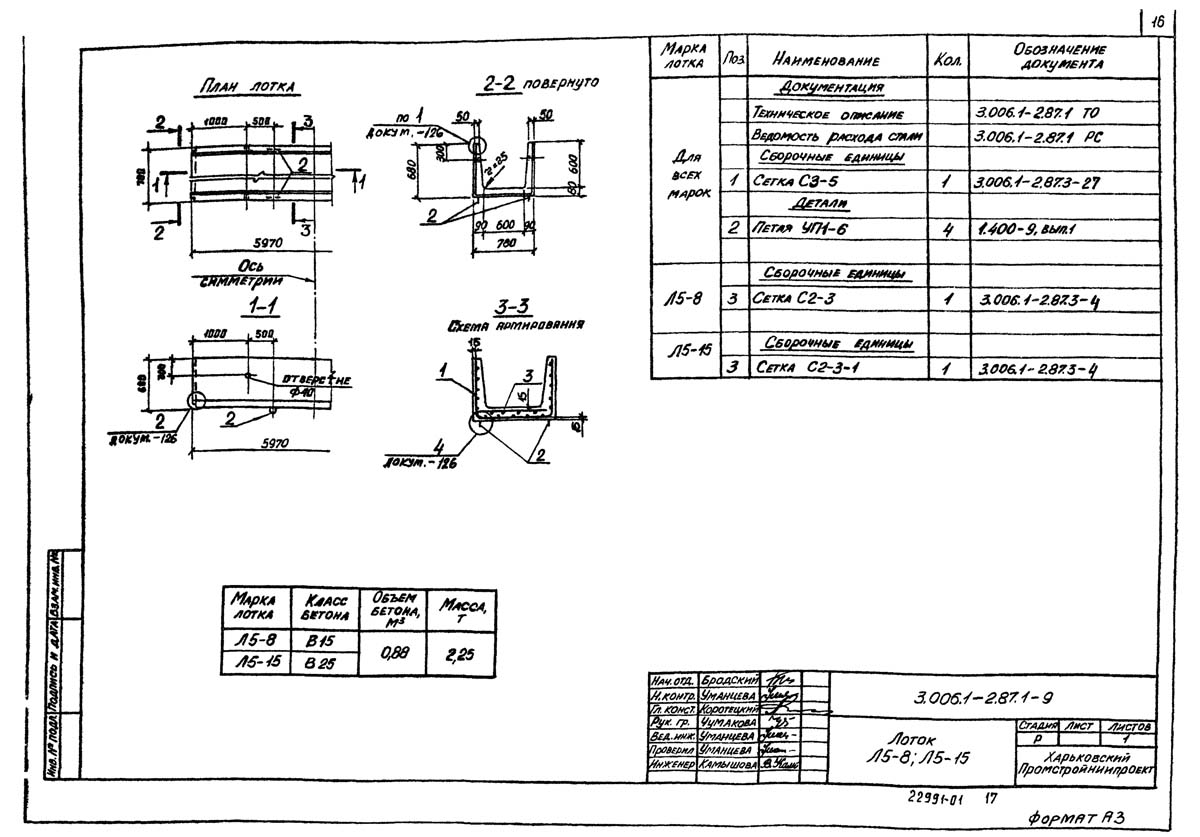 16
План лотка
2-2 повернуто
1000
500
2
3
2
700
1
1
2
3
5970
Ось
симметрии
по 1
докум.-126
50
50
300
680
r=25
600
80
2
90
600
90
780
1-1
1000
500
680
200
отверстие
φ40
2
докум.-126
2
5970
3-3
Схема армирования
15
1
3
15
15
4
докум.-126
2
Марка лотка Поз. Наименование Кол. Обозначение документа
Документация
Техническое описание 3.006.1-2.87.1 ТО
Ведомость расхода стали 3.006.1-2.87.1 РС
Для всех марок
Сборочные единицы
1 Сетка С3-5 1 3.006.1-2.87.3-27
Детали
2 Петля УП1-6 4 1.400-9, вып.1
Сборочные единицы
Л5-8 3 Сетка С2-3 1 3.006.1-2.87.3-4
Л5-15 Сборочные единицы
3 Сетка С2-3-1 1 3.006.1-2.87.3-4
Марка лотка Класс бетона Объем бетона, м³ Масса, т
Л5-8 В15 0,88 2,25
Л5-15 В25
Инв.№ подл. Подпись и дата Взам.инв.№
Нач. отд. Бродский
Н.контр. Уманцева
Гл. конст. Коротецкий
Рук. гр. Чумакова
Вед. инж. Уманцева
Проверил Уманцева
Инженер Камышова
3.006.1-2.87.1-9
Лоток
Л5-8; Л5-15
Стадия Лист Листов
Р 1
Харьковский
Промстройниипроект
22991-01 17
Формат А3